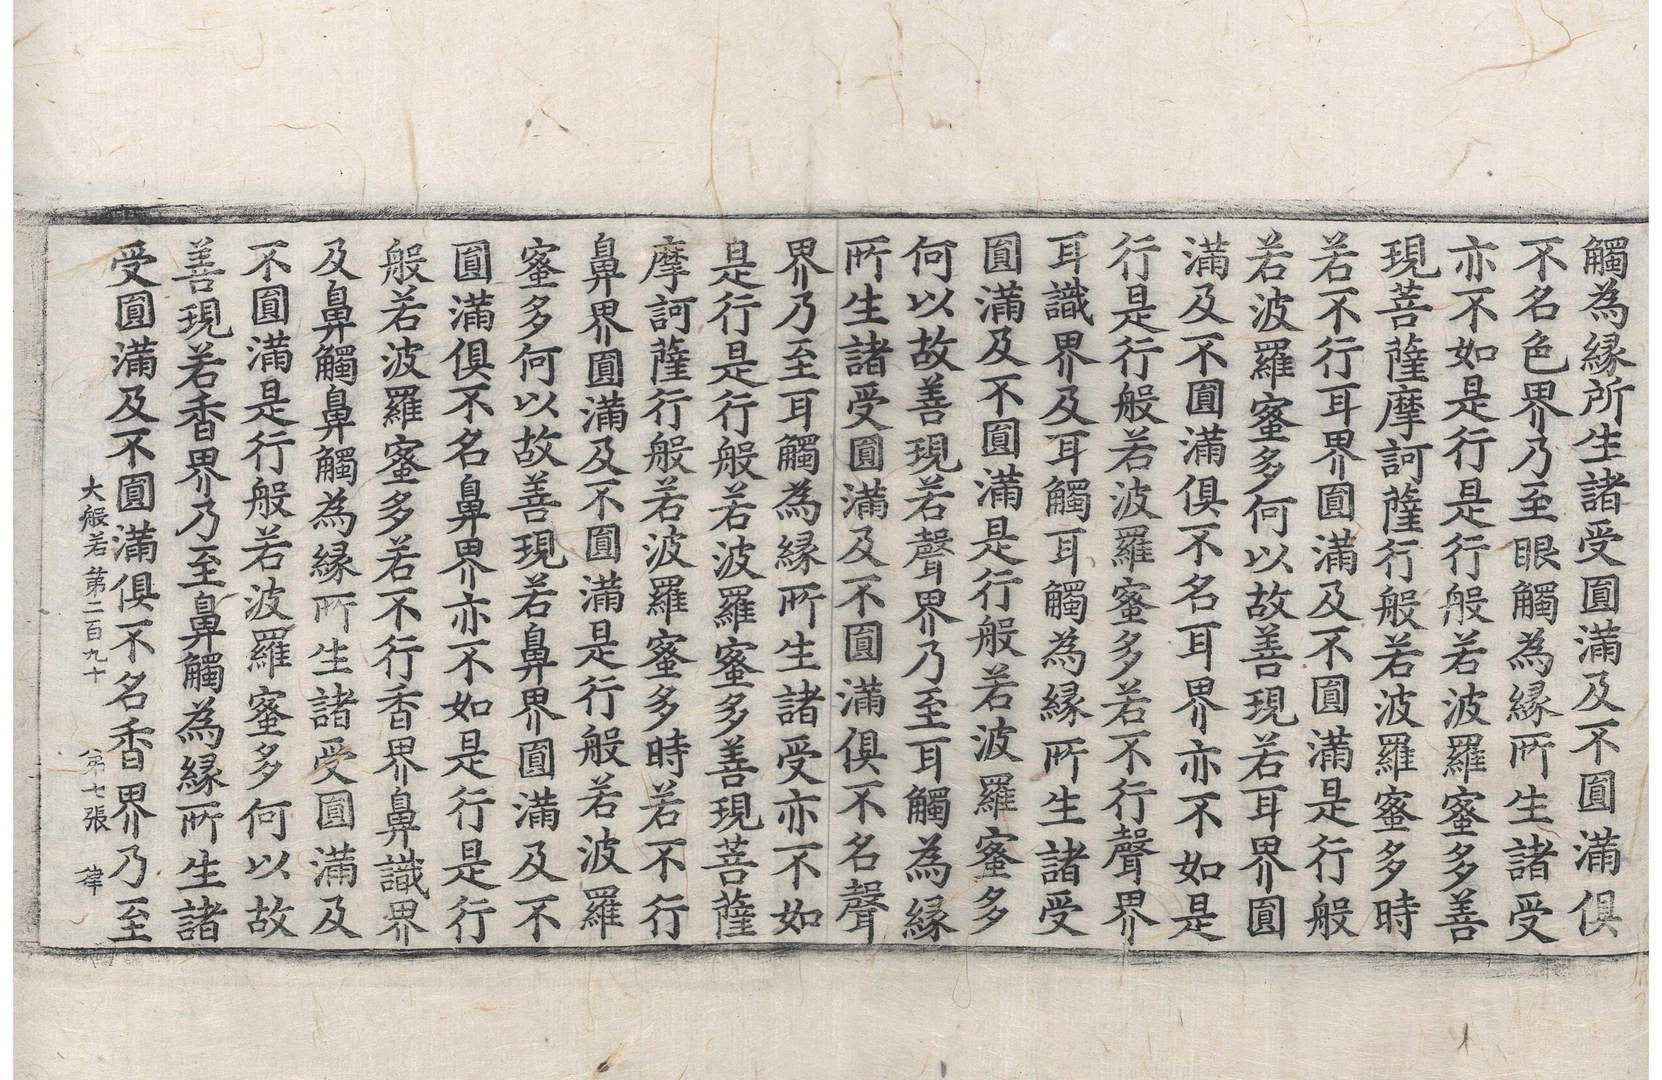 觸為縁所生諸受圓滿及不圓滿俱
不名色界乃至眼觸為縁所生諸受
亦不如是行是行般若波羅蜜多善
現菩薩摩訶薩行般若波羅蜜多時
若不行耳界圓滿及不圓滿是行般
若波羅蜜多何以故善現若耳界圓
滿及不圓滿俱不名耳界亦不如是
行是行般若波羅蜜多若不行聲界
耳識界及耳觸耳觸為縁所生諸受
圓滿及不圓滿是行般若波羅蜜多
何以故善現若聲界乃至耳觸為縁
所生諸受圓滿及不圓滿俱不名聲
界乃至耳觸為縁所生諸受亦不如
是行是行般若波羅蜜多善現菩薩
摩訶薩行般若波羅蜜多時若不行
鼻界圓滿及不圓滿是行般若波羅
蜜多何以故善現若鼻界圓滿及不
圓滿俱不名鼻界亦不如是行是行
般若波羅蜜多若不行香界鼻識界
及鼻觸鼻觸為縁所生諸受圓滿及
不圓滿是行般若波羅蜜多何以故
善現若香界乃至鼻觸為縁所生諸
受圓滿及不圓滿俱不名香界乃至
大般若第二百九十 第七張 律